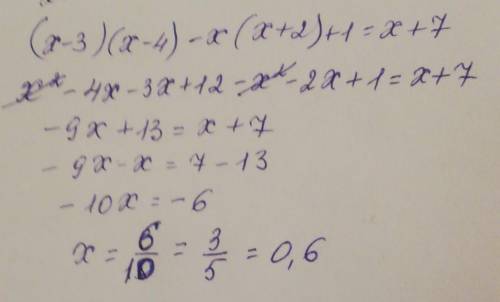 (x-3)(x-4)-x(x+2)+1=x+7
x²-4x-3x+12-x²-2x+1=x+7
-9x+13=x+7
-9x-x=7-13
-10x=-6
x=6/10=3/5=0,6